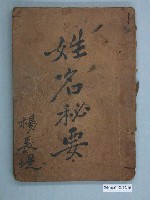 姓名秘要
楊長堤